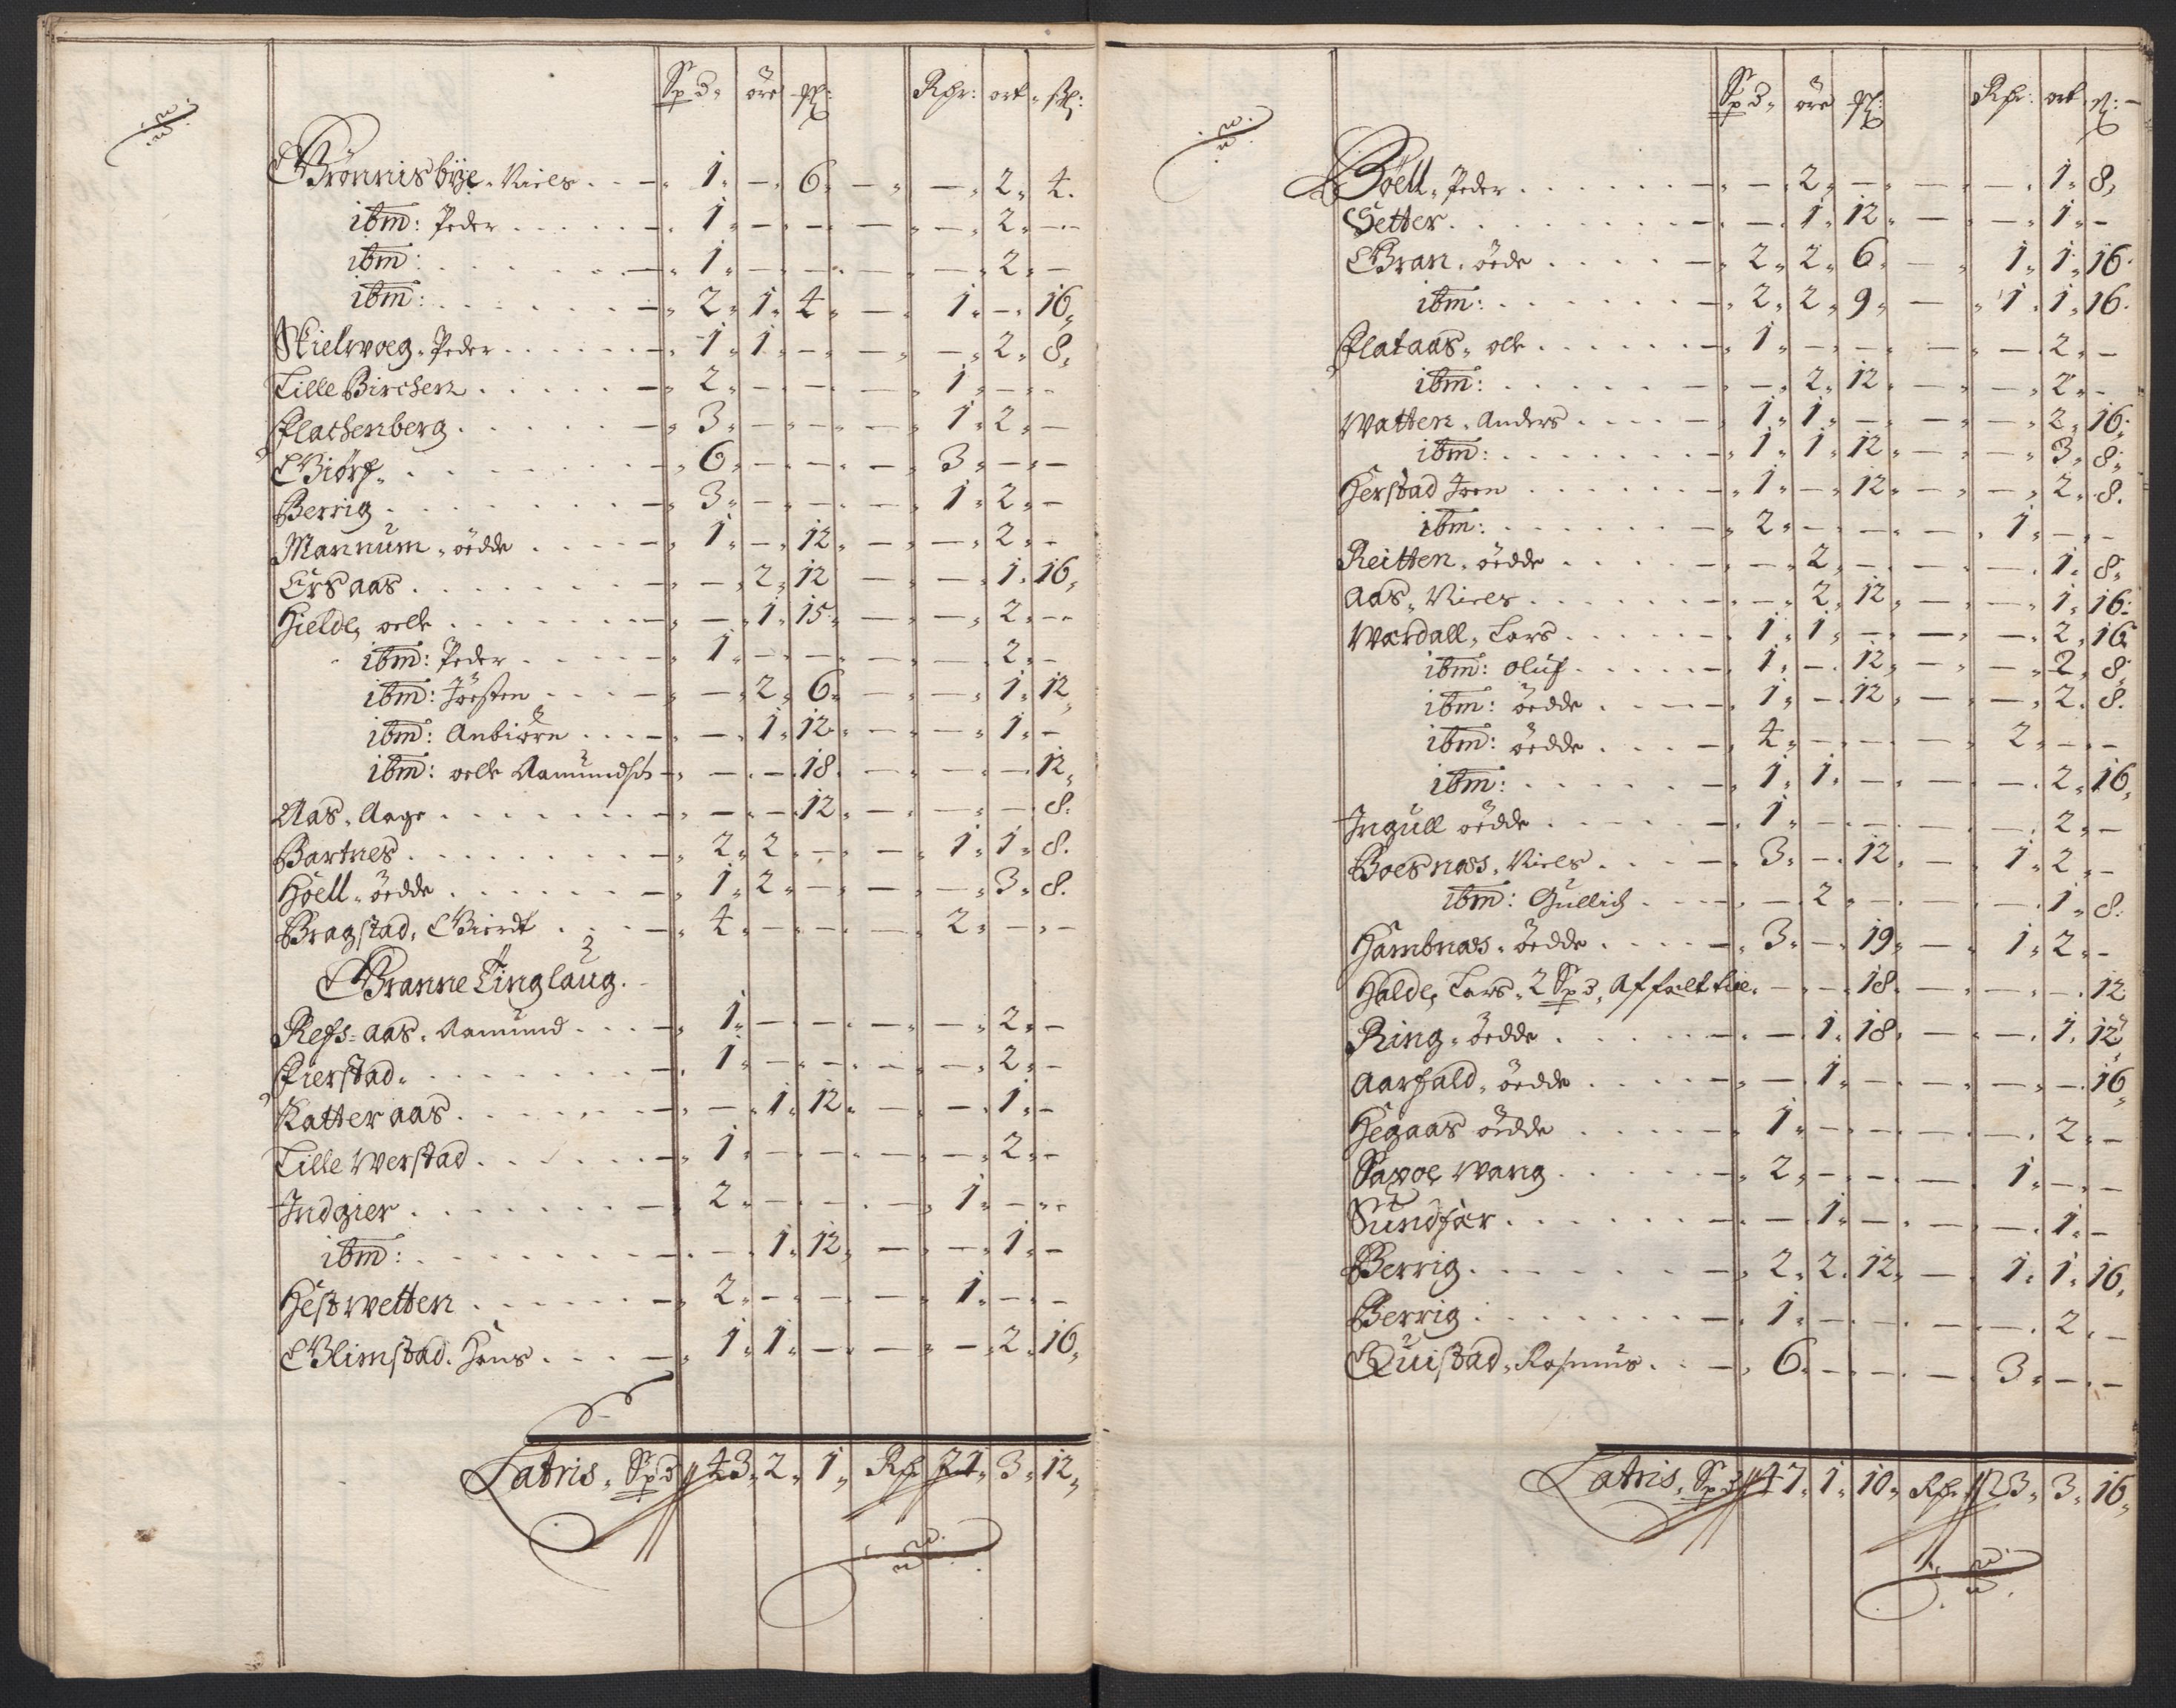 Spd, öre
Rdr: ort. sk:
Grönnisbÿe, Niels - 1, -, 6, - - -, 2, 4.
ibm: Peder - 1, - - - -, 2, -
ibm: - 1, - - - -, 2, -
ibm: - 2, 1, 4, - - 1, -, 16,
Skielwoeg, Peder - 1, 1, - - -, 2, 8,
Lille Birchen - 2, - - - 1, - -
Flathenberg - 3, - - - 1, 2, -
Giörf - 6, - - - 3, - -
Berrig - 3, - - - 1, 2, -
Mannum, öedde - 1, -, 12, - -, 2, -
Ersaas - -, 2, 12 - -, 1, 16,
Hielde, oelle - -, 1, 15, - -, 2, -
ibm: Peder - 1, - - - -, 2, -
ibm: Joesten - -, 2, 6, - -, 1, 12,
ibm: Anbiörn - -, 1, 12, - -, 1, -
ibm: oelle Aamundsen - - -, 18, - - -, 12,
Aas, Aage - - -, 12, - - -, 8.
Bartnes - 2, 2, - - 1, 1, 8.
Hoell, öedde - 1, 2, - - -, 3, 8.
Bragstad, Gierdt - 4, - - - 2, - -
Granne Tinglaug.
Refs-aas, Aamund - 1, - - - -, 2, -
Fierstad - 1, - - - -, 2, -
Katteraas - -, 1, 12, - -, 1, -
Lille Werstad - 1, - - - -, 2, -
Indgier - 2, - - - 1, - -
ibm: - -, 1, 12, - -, 1, -
Hestwetten - 2, - - - 1, - -
Glimstad, Hans - 1, 1, - - -, 2, 16,
Latris, Spd 43, 2, 1, Rdr 21, 3, 12,
Spd, öre
Rdr: ort
Böell, Peder - -, 2, - - -, 1, 8,
Setter - -, 1, 12, - -, 1, -
Gran, öede - 2, 2, 6, - 1, 1, 16.
ibm: - 2, 2, 9, - 1, 1, 16.
Flataas, olle - 1, - - - -, 2, -
ibm: - -, 2, 12, - -, 2, -
Watten, Anders - 1, 1, - - -, 2, 16;
ibm: - 1, 1, 12, - -, 3, 8;
Herstad Joen - 1, -, 12, - -, 2, 8.
ibm: - 2, - - - 1, - -
Reitten, öedde - -, 2, - - -, 1, 8,
Aas, Niels - -, 2, 12, - -, 1, 16:
Wærdall, Lars - 1, 1, - - -, 2, 16,
ibm: oluf - 1, -, 12, - -, 2, 8,
ibm: öedde - 1, -, 12, - -, 2, 8.
ibm: öedde - 4, - - - 2, - -
ibm: - 1, 1, - - -, 2, 16,
Ingull öedde - 1, - - - -, 2, -
Boesnæs, Niels - 3, -, 12, - 1, 2, -
ibm: Gullich - -, 2, - - -, 1, 8.
Hambnæs, öedde - 3, -, 19, - 1, 2, -
Halde, Lars, 2 Spd, Affælt - -, 18, - - -, 12
Ring, öedde - -, 1, 18, - -, 1, 12,
Aarfald, öedde - -, 1, - - - -, 16,
Hegaas öedde - 1, - - - -, 2, -
Saxoe, wang - 2, - - - 1, - -
Sundfær - -, 1, - - -, 1, -
Berrig - 2, 2, 12, - 1, 1, 16,
Berrig - 1, - - - -, 2, -
Quistad, Rasmus - 6, - - - 3, - -
Latris, Spd 47, 1, 10, Rdr 23, 3, 16,